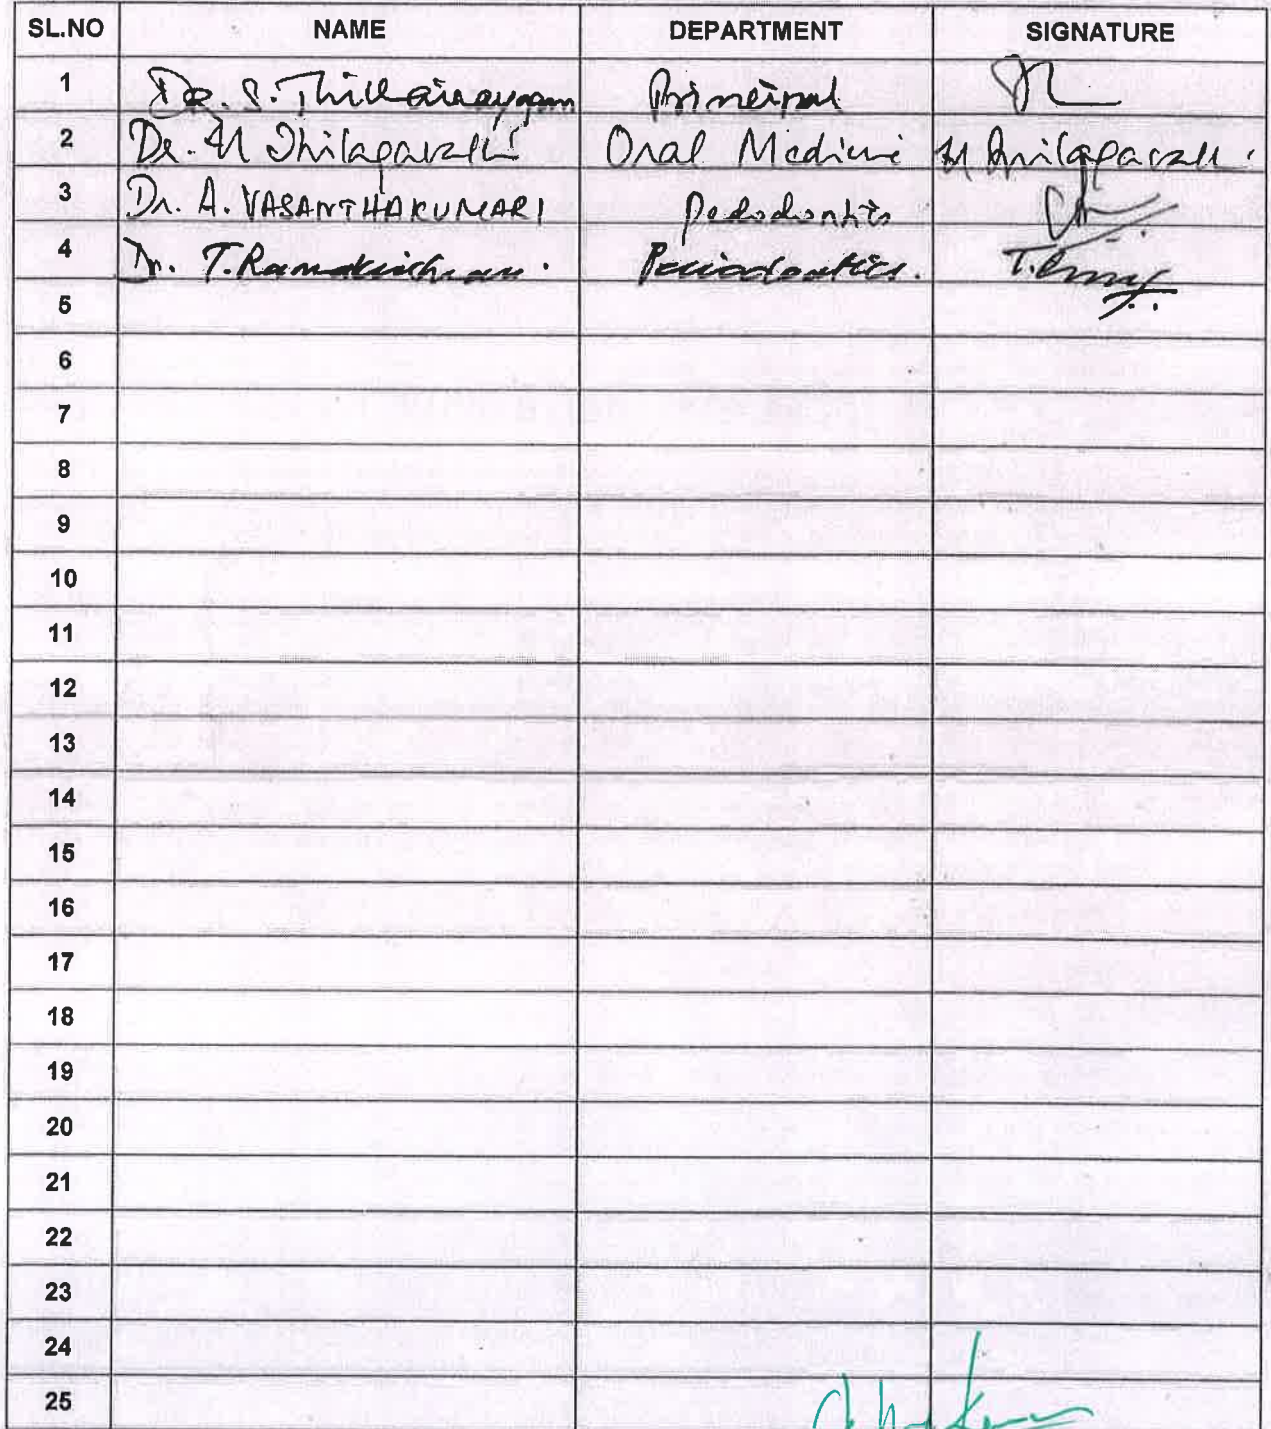 SL.NO NAME DEPARTMENT SIGNATURE
1 Dr. S. Thillainayagam Principal
2 Dr. M Thilagavathi Oral Medicine M Thilagavathi.
3 Dr. A. VASANTHAKUMARI Pedodontics
4 Dr. T. Ramakrishnan. Periodontics.
5
6
7
8
9
10
11
12
13
14
15
16
17
18
19
20
21
22
23
24
25